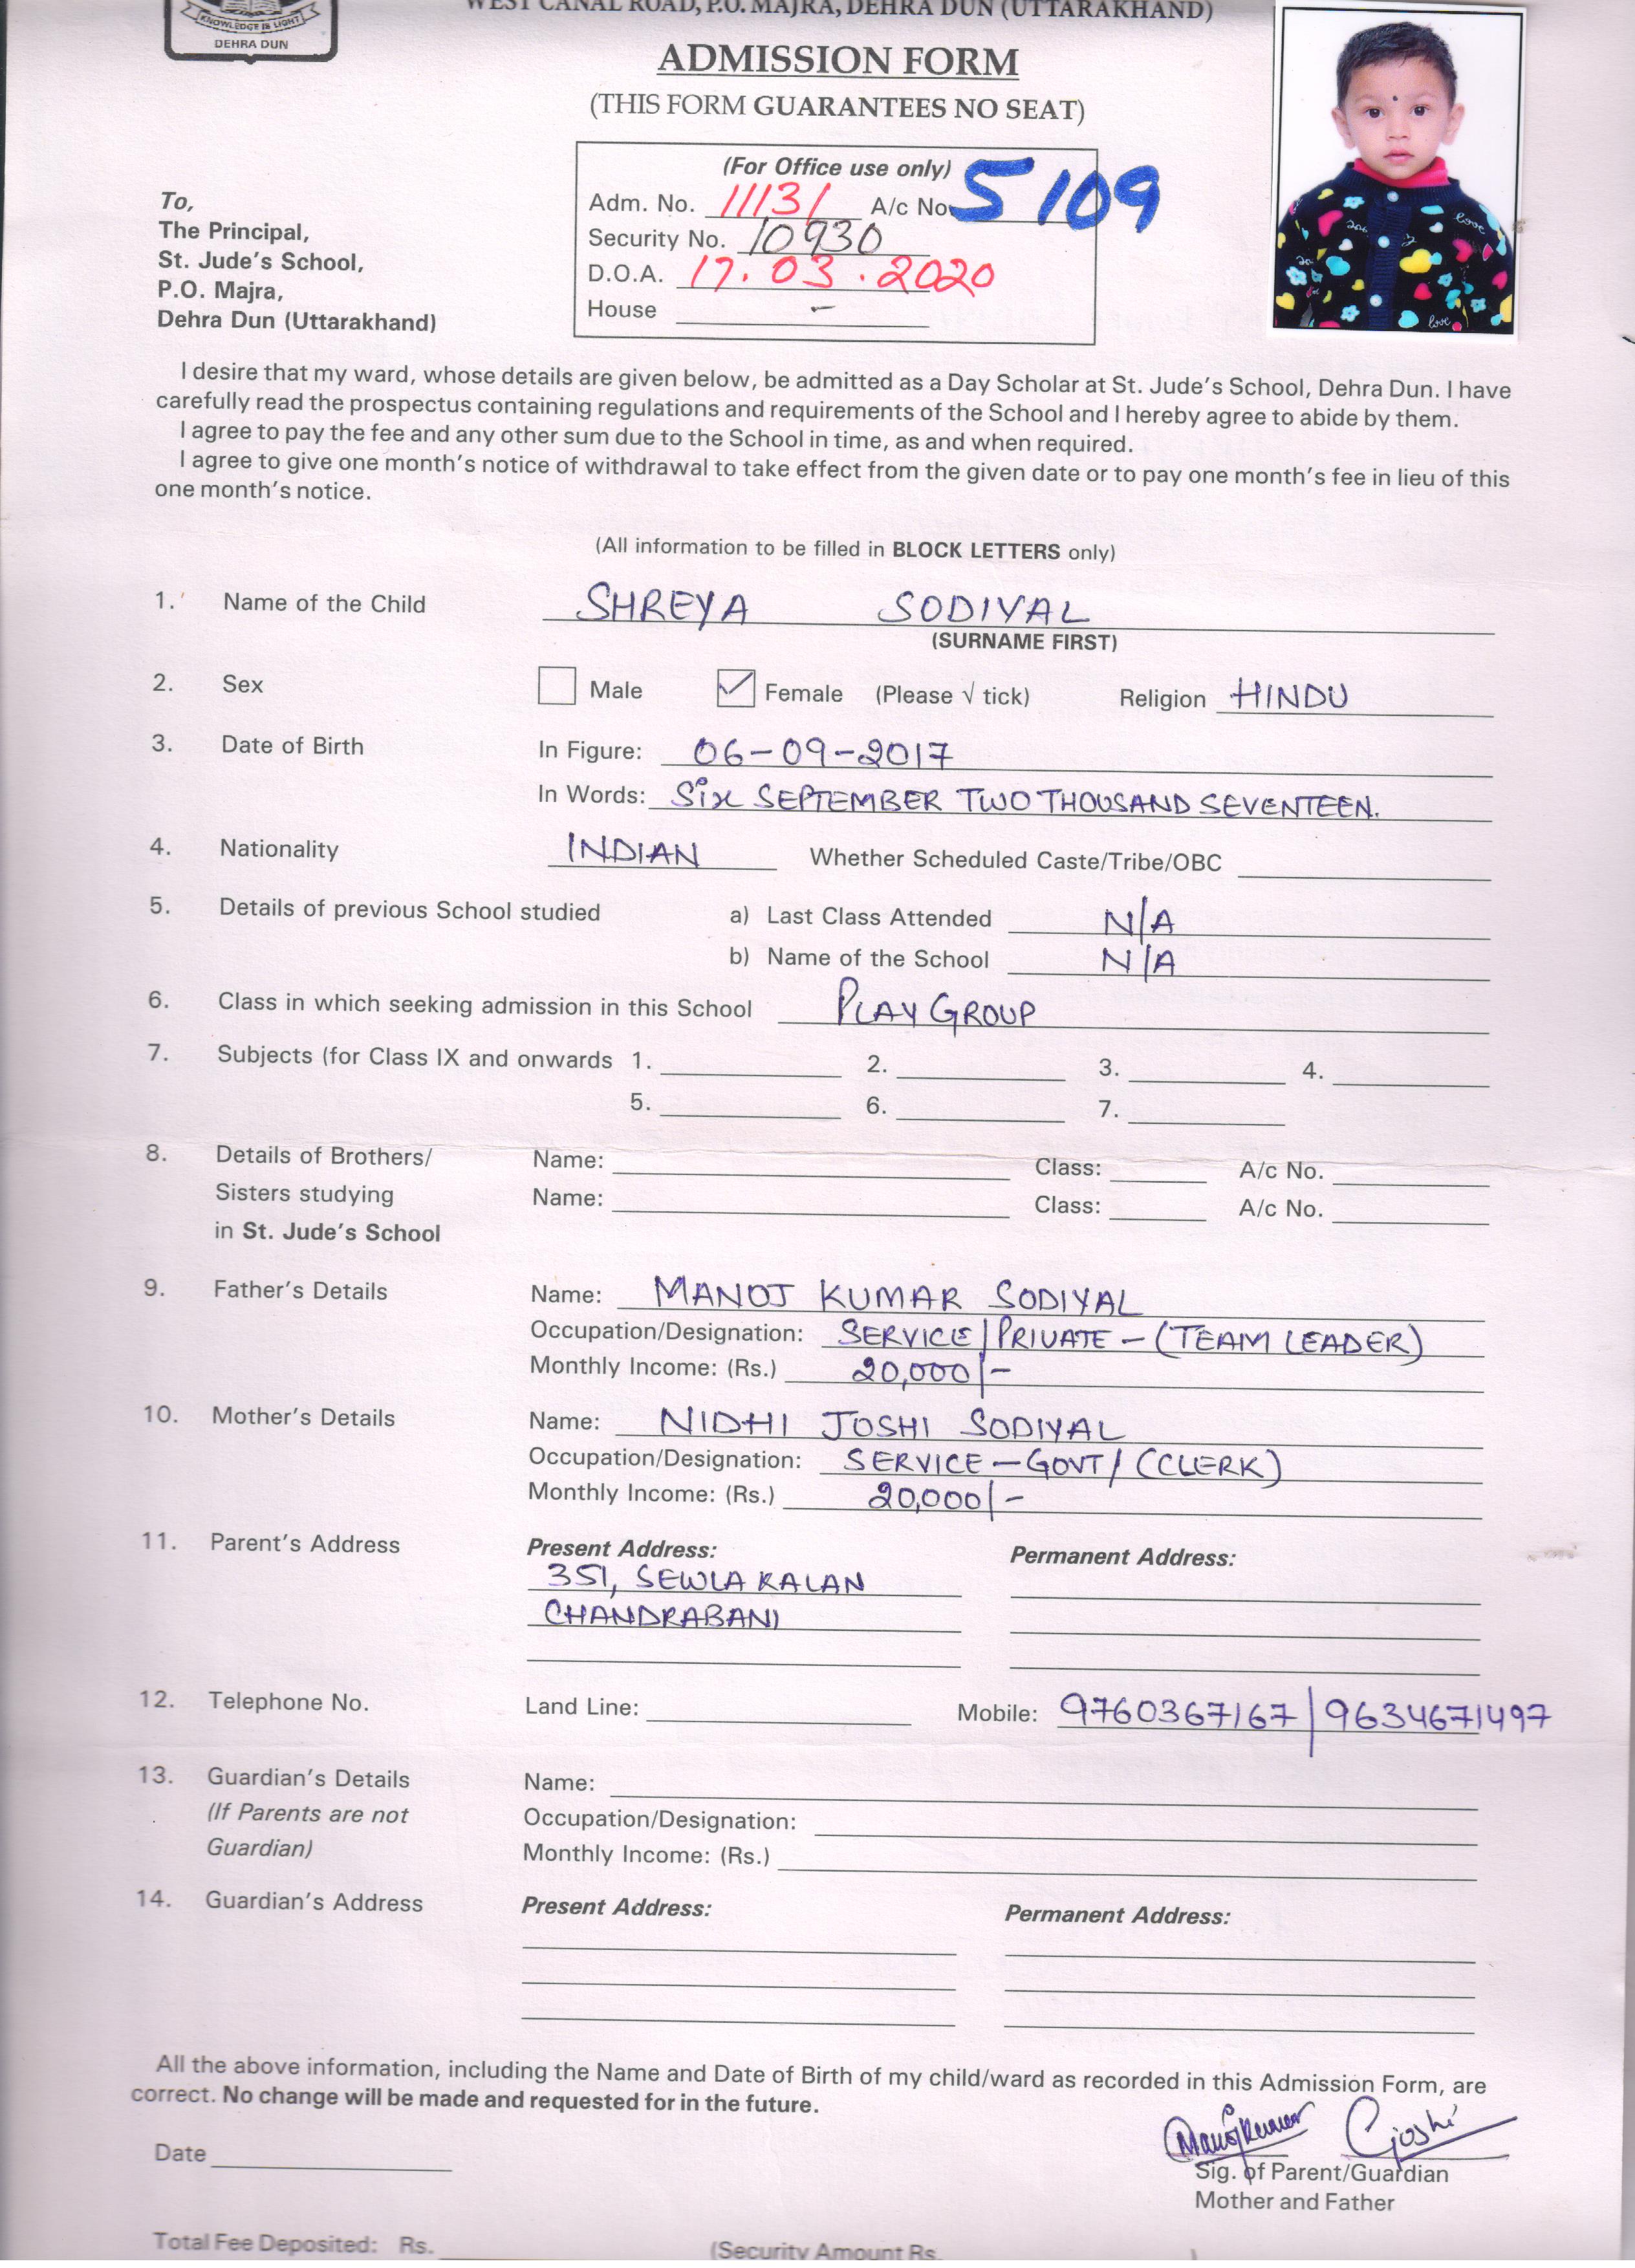 KNOWLEDGE IS LIGHT
DEHRA DUN
WEST CANAL ROAD, P.O. MAJRA, DEHRA DUN (UTTARAKHAND)
ADMISSION FORM
(THIS FORM GUARANTEES NO SEAT)
(For Office use only)
Adm. No. 11131 A/c No. 5109
Security No. 10930
D.O.A. 17.03.2020
House -
To,
The Principal,
St. Jude's School,
P.O. Majra,
Dehra Dun (Uttarakhand)
I desire that my ward, whose details are given below, be admitted as a Day Scholar at St. Jude's School, Dehra Dun. I have
carefully read the prospectus containing regulations and requirements of the School and I hereby agree to abide by them.
I agree to pay the fee and any other sum due to the School in time, as and when required.
I agree to give one month's notice of withdrawal to take effect from the given date or to pay one month's fee in lieu of this
one month's notice.
(All information to be filled in BLOCK LETTERS only)
1. Name of the Child SHREYA SODIYAL
(SURNAME FIRST)
2. Sex Male Female (Please √ tick) Religion HINDU
3. Date of Birth In Figure: 06-09-2017
In Words: Six SEPTEMBER TWO THOUSAND SEVENTEEN.
4. Nationality INDIAN Whether Scheduled Caste/Tribe/OBC
5. Details of previous School studied a) Last Class Attended N/A
b) Name of the School N/A
6. Class in which seeking admission in this School PLAY GROUP
7. Subjects (for Class IX and onwards 1. 2. 3. 4.
5. 6. 7.
8. Details of Brothers/ Name: Class: A/c No.
Sisters studying Name: Class: A/c No.
in St. Jude's School
9. Father's Details Name: MANOJ KUMAR SODIYAL
Occupation/Designation: SERVICE/PRIVATE - (TEAM LEADER)
Monthly Income: (Rs.) 20,000/-
10. Mother's Details Name: NIDHI JOSHI SODIYAL
Occupation/Designation: SERVICE - GOVT/ (CLERK)
Monthly Income: (Rs.) 20,000/-
11. Parent's Address Present Address: Permanent Address:
351, SEWLA KALAN
CHANDRABANI
12. Telephone No. Land Line: Mobile: 9760367167/9634671497
13. Guardian's Details Name:
(If Parents are not Occupation/Designation:
Guardian) Monthly Income: (Rs.)
14. Guardian's Address Present Address: Permanent Address:
All the above information, including the Name and Date of Birth of my child/ward as recorded in this Admission Form, are
correct. No change will be made and requested for in the future.
Manojkumar Gjoshi
Date Sig. of Parent/Guardian
Mother and Father
Total Fee Deposited: Rs. (Security Amount Rs. )